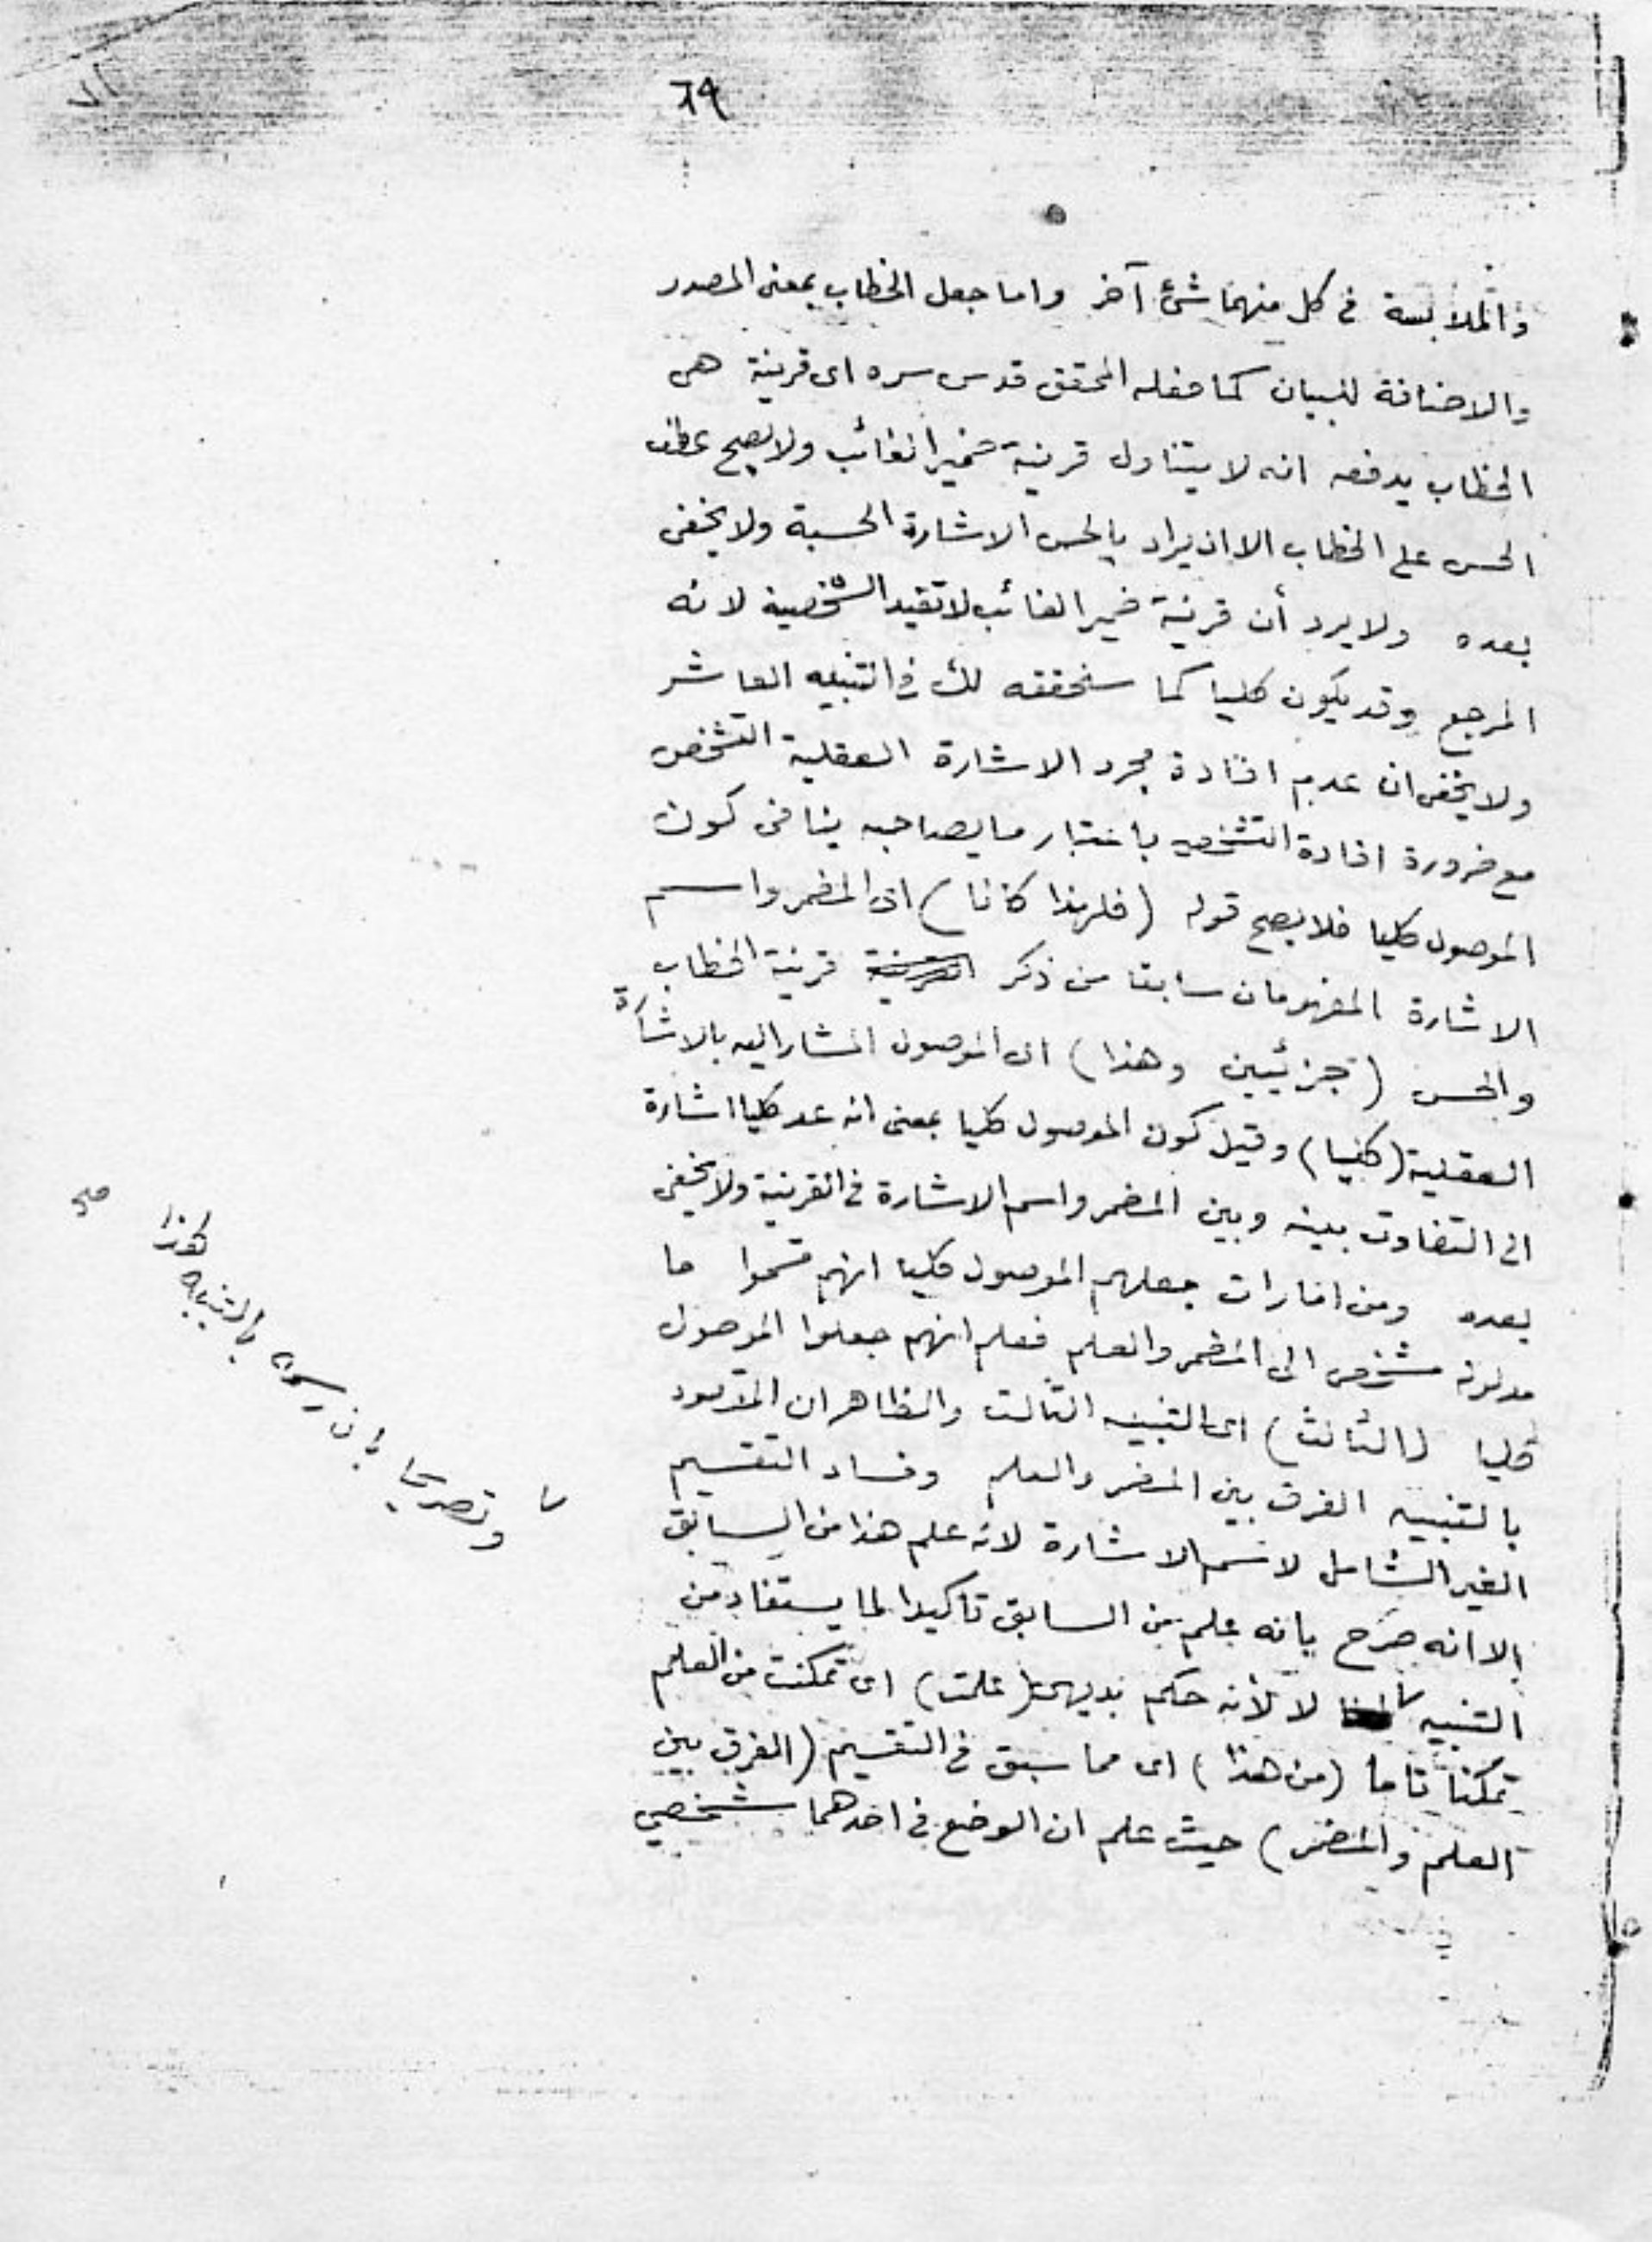 ٦٩
٧١
والملابسة فى كل منهما شئ آخر واما جعل الخطاب بمعنى المصدر
والاضافة للبيان كما فعله المحقق قدس سره اى قرينة هى
الخطاب يدفعه انه لا يتناول قرينة ضمير الغائب ولا يصح عطف
الحس على الخطاب الا ان يراد بالحس الاشارة الحسية ولا يخفى
بعده ولا يرد أن قرينة ضمير الغائب لا تفيد الشخصية لانه
المرجع وقد يكون كليا كما سنحققه لك فى التنبيه العاشر
ولا يخفى ان عدم افادة مجرد الاشارة العقلية التشخص
مع ضرورة افادة التشخص باعتبار ما يصاحبه ينافى كون
الموصول كليا فلا يصح قوله (فلهذا كانا) اى المضمر واسم
الاشارة المفهومان سابقا من ذكر القرينة قرينة الخطاب
والحس (جزئيين وهذا) اى الموصول المشار اليه بالاشارة
العقلية (كليا) وقيل كون الموصول كليا بمعنى انه عد كليا اشارة
الى التفاوت بينه وبين المضمر واسم الاشارة فى القرينة ولا يخفى
بعده ومن امارات جعلهم الموصول كليا انهم قسموا ما
مدلوله مشخص الى المضمر والعلم فعلم انهم جعلوا الموصول
كليا (الثالث) اى التنبيه الثالث والظاهر ان المقصود
بالتنبيه الفرق بين المضمر والعلم وفساد التقسيم
الغير الشامل لاسم الاشارة لانه علم هذا من السابق
الا انه صرح بانه علم من السابق تأكيدا لما يستفاد من
التنبيه لا لأنه حكم بديهى (علمت) اى تمكنت من العلم
تمكنا تاما (من هذا) اى مما سبق فى التقسيم (الفرق بين
العلم والمضمر) حيث علم ان الوضع فى احدهما شخصي
وتصريحا بان سوقه بالتنبيه لهذا صح